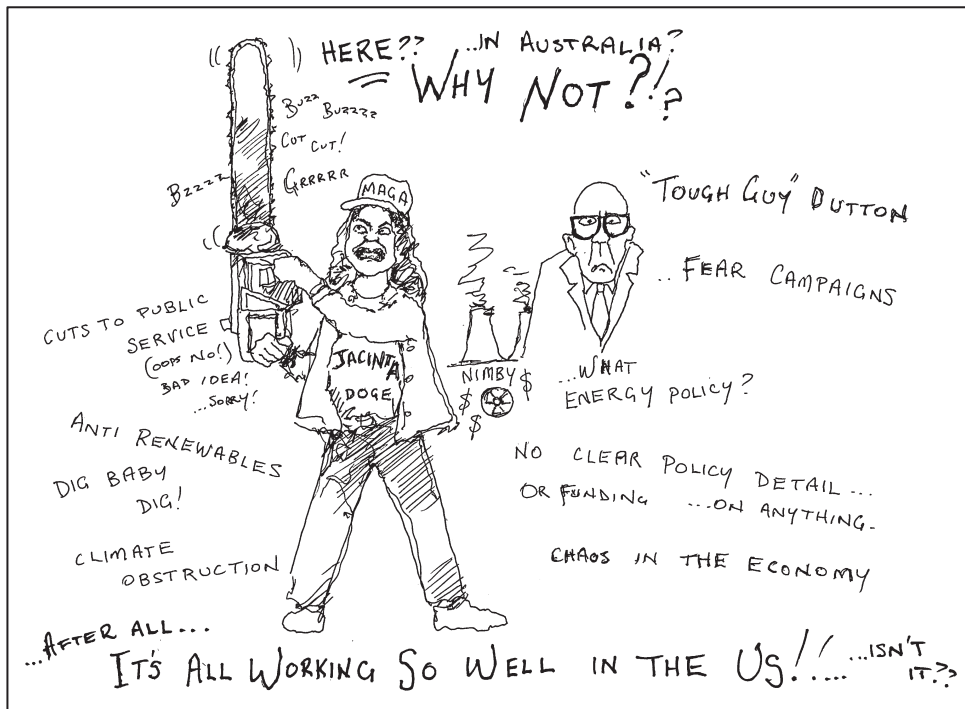 HERE?? ...IN AUSTRALIA?
WHY NOT?!?
BUZZ BUZZZZ
CUT CUT!
BZZZZ
GRRRRR
MAGA
"TOUGH GUY" DUTTON
..FEAR CAMPAIGNS
CUTS TO PUBLIC
SERVICE
(OOPS NO!)
BAD IDEA!
...SORRY!
JACINTA
DOGE
NIMBY $
$
$
...WHAT
ENERGY POLICY?
ANTI RENEWABLES
DIG BABY
DIG!
NO CLEAR POLICY DETAIL...
OR FUNDING ...ON ANYTHING-
CLIMATE
OBSTRUCTION
CHAOS IN THE ECONOMY
...AFTER ALL...
IT'S ALL WORKING SO WELL IN THE US!!... ...ISN'T
IT??